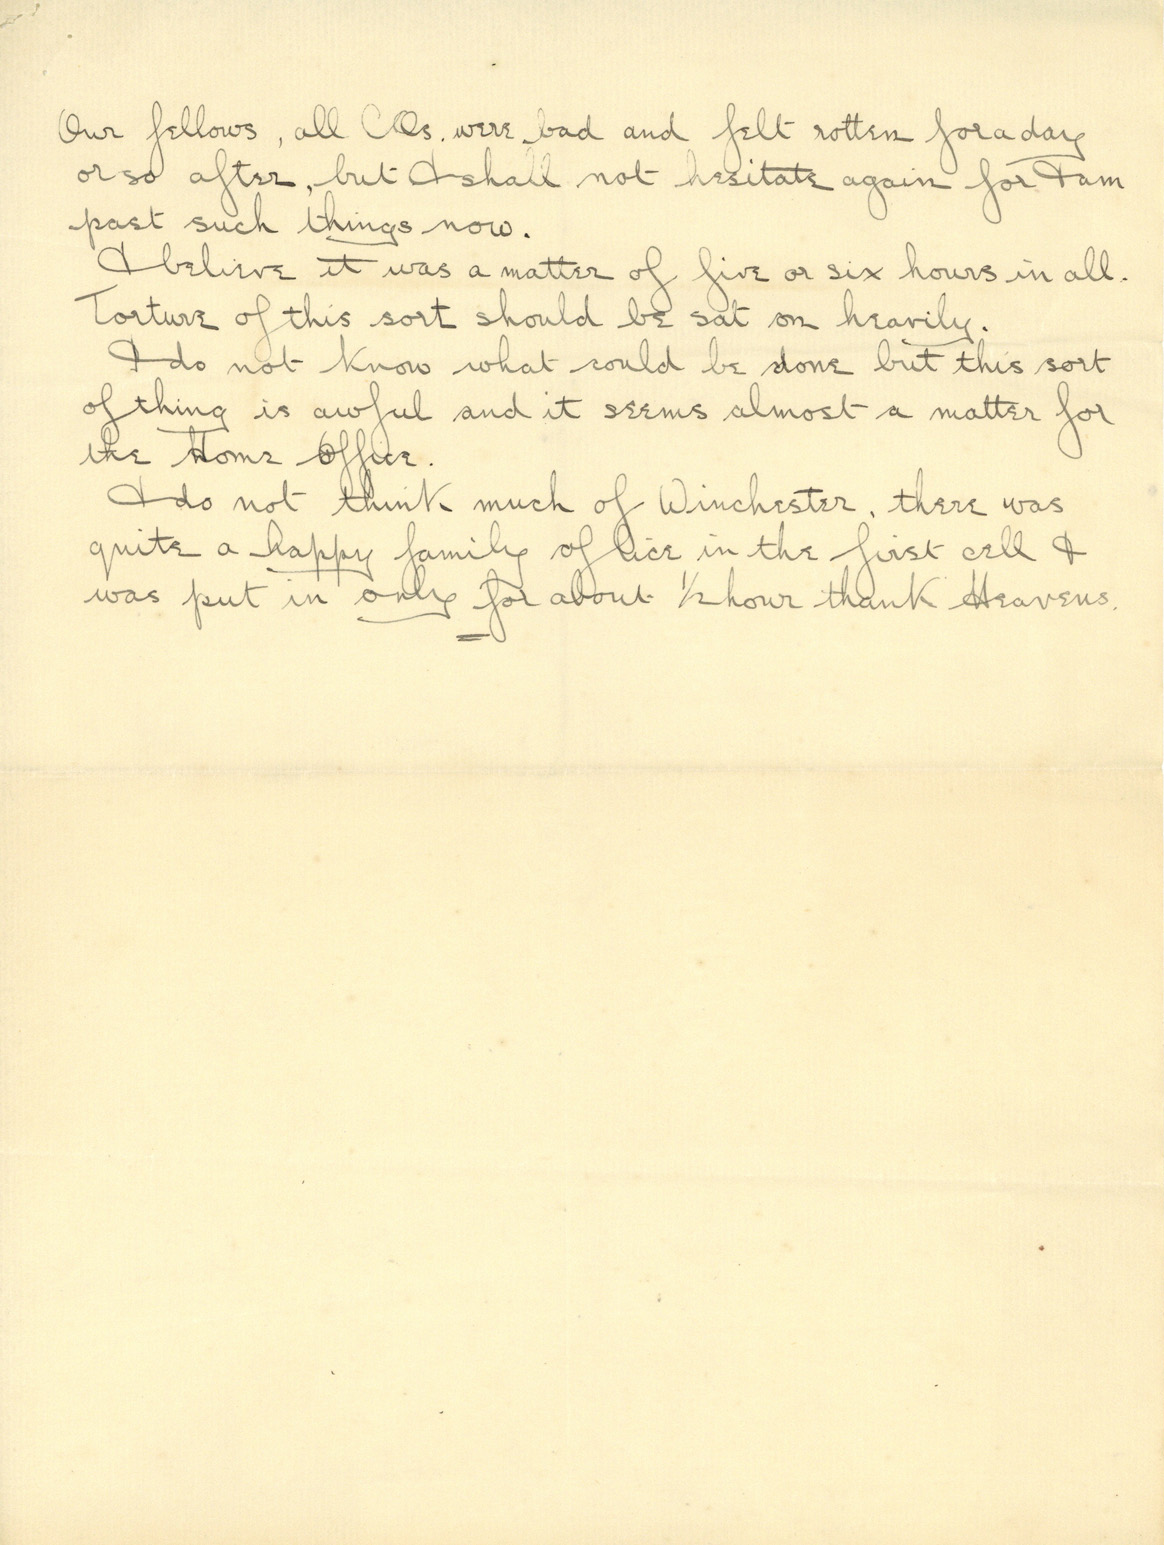 Our fellows, all COs. were bad and felt rotten for a day
or so after, but I shall not hesitate again for I am
past such things now.
I believe it was a matter of five or six hours in all.
Torture of this sort should be sat on heavily.
I do not know what could be done but this sort
of thing is awful and it seems almost a matter for
the Home Office.
I do not think much of Winchester, there was
quite a happy family of lice in the first cell I
was put in only for about ½ hour thank Heavens.